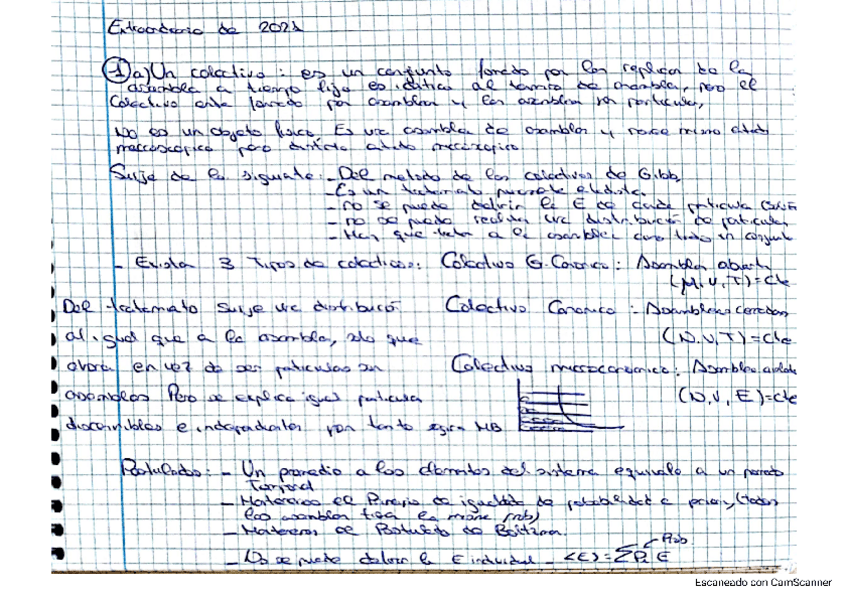 Extraordinario de 2021
1 a) Un colectivo: es un conjunto formado por las replicas de la
asamblea a tiempo fijo es idéntico al termino de asamblea, pero el
colectivo esta formado por asambleas y las asambleas por particulas,
No es un objeto fisico, Es una asamblea de asambleas y mismo estado
macroscópico pero distinto estado microscópico.
Surje de lo siguiente: - Del metodo de los colectivos de Gibbs
- Es un tratamiento
- no se puede definir la E de cada particula
- no se puede realizar una distribución de particulas
- Hay que tratar a la asamblea como todo un conjunto
- Existen 3 Tipos de colectivos: Colectivo G. Canonico: Asamblea abierta
(M, V, T) = cte
Del tratamiento surje una distribución Colectivo Canonico: Asambleas cerradas
al igual que a la asamblea, solo que (N, V, T) = cte
ahora en vez de ser particulas son Colectivo microcanonico: Asamblea aislada
asambleas Pero se explica igual particula (N, V, E) = cte
discernibles e independientes por tanto MB
Postulados: - Un promedio a los elementos del sistema equivale a un promedio
Temporal
- Mantenemos el Principio de igualdad de probabilidad a priori, (todas
las asambleas tienen la misma prob)
- Mantenemos el Postulado de Boltzman.
- No se puede definir la E individual - <E> = ΣPᵢE Prob
Escaneado con CamScanner